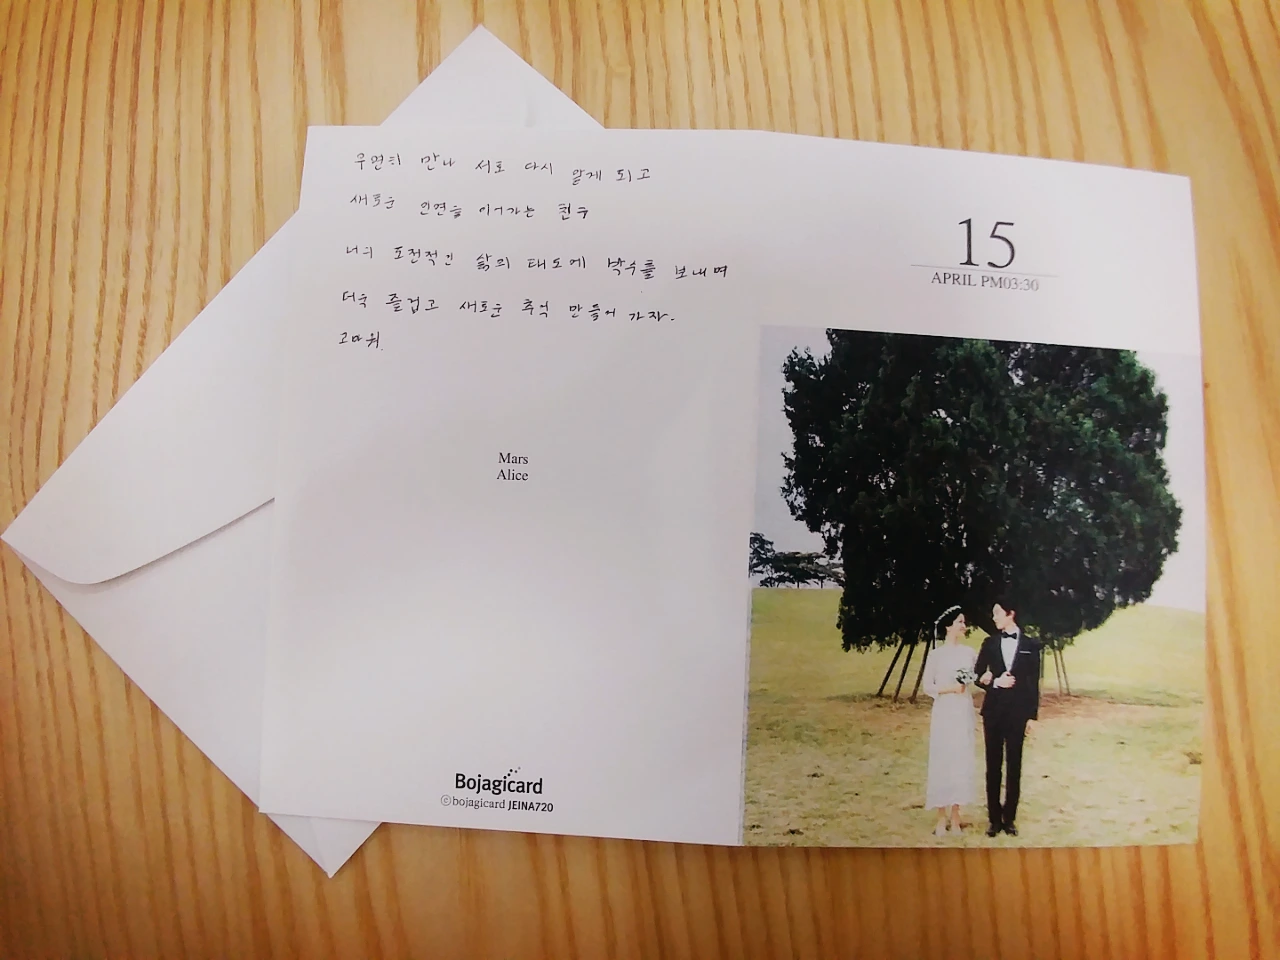 우연히 만나 서로 다시 알게 되고
새로운 인연을 이어가는 친구
너의 도전적인 삶의 태도에 박수를 보내며
더욱 즐겁고 새로운 추억 만들어 가자.
고마워.
Mars
Alice
Bojagicard
ⓒbojagicard JEINA720
15
APRIL PM03:30